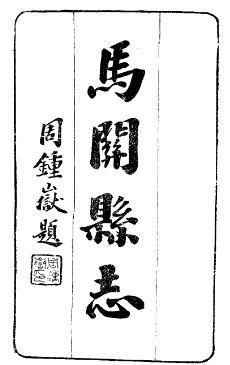 馬關縣志
周鍾嶽題